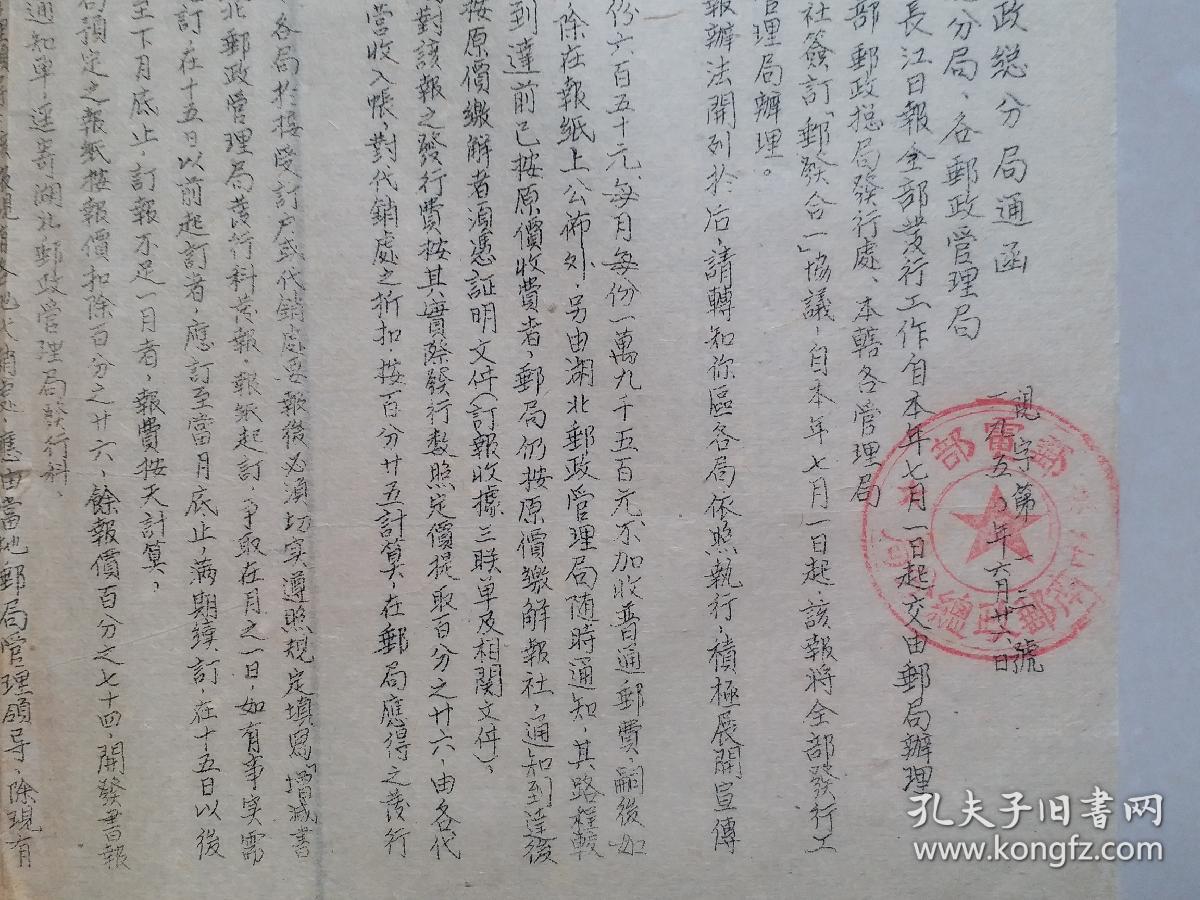 政總分局通函
總分局、各郵政管理局
視字第一三號
一九五〇年六月廿六日
長江日報全部發行工作自本年七月一日起交由郵局辦理
部郵政總局發行處、本轄各管理局
社簽訂「郵發合一」協議，自本年七月一日起，該報將全部發行工
管理局辦理。
報辦法開列於后，請轉知你區各局依照執行，積極展開宣傳
份六百五十元，每月每份一萬九千五百元不加收普通郵費，嗣後如
除在報紙上公佈外，另由湖北郵政管理局隨時通知，其路程較
到達前已按原價收費者，郵局仍按原價繳解報社，通知到達後
按原價繳解者須憑証明文件（訂報收據三联单及相関文件）、
對該報之發行費按其實際發行数照定價提取百分之廿六，由各代
營收入帳，對代銷處之折扣，按百分廿五計算，在郵局應得之發行
各局於接受訂户或代銷處要報後必須切实遵照規定填寫「增减書
北郵政管理局發行科發報，報紙起訂，争取在月之一日，如有事实需
訂，在十五日以前起訂者，應訂至當月底止，满期續訂，在十五日以後
至下月底止，訂報不足一月者，報費按天計算，
局預定之報紙按報價扣除百分之廿六，餘報價百分之七十四，開發書報
通知單逕寄湖北郵政管理局發行科、
應由當地郵局管理領导，除現有
郵電部
郵政總
孔夫子旧书网
www.kongfz.com